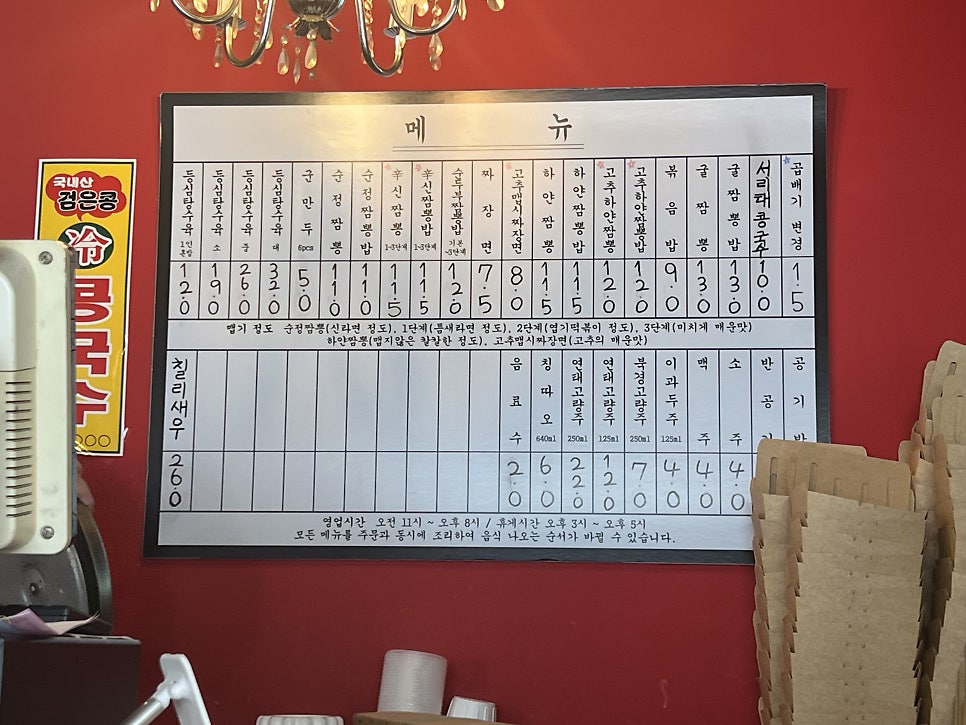 메 뉴
등심탕수육 1인혼밥 12.0
등심탕수육 소 19.0
등심탕수육 중 26.0
등심탕수육 대 32.0
군만두 6pcs 5.0
순정짬뽕 11.0
순정짬뽕밥 11.0
辛신짬뽕 1~3단계 11.5
辛신짬뽕밥 1~3단계 11.5
순두부짬뽕밥 기본~3단계 12.0
짜장면 7.5
고추맵시짜장면 8.0
하얀짬뽕 11.5
하얀짬뽕밥 11.5
고추하얀짬뽕 12.0
고추하얀짬뽕밥 12.0
볶음밥 9.0
굴짬뽕 13.0
굴짬뽕밥 13.0
서리태콩국수 10.0
곱배기 변경 1.5
맵기 정도 순정짬뽕(신라면 정도), 1단계(틈새라면 정도), 2단계(엽기떡볶이 정도), 3단계(미치게 매운맛)
하얀짬뽕(맵지않은 칼칼한 정도), 고추맵시짜장면(고추의 매운맛)
칠리새우 26.0
음료수 2.0
칭따오 640ml 6.0
연태고량주 250ml 22.0
연태고량주 125ml 12.0
북경고량주 250ml 7.0
이과두주 125ml 4.0
맥주 4.0
소주 4.0
반공기
공기밥
영업시간 오전 11시 ~ 오후 8시 / 휴게시간 오후 3시 ~ 오후 5시
모든 메뉴를 주문과 동시에 조리하여 음식 나오는 순서가 바뀔 수 있습니다.
국내산
검은콩
冷
콩국수
000